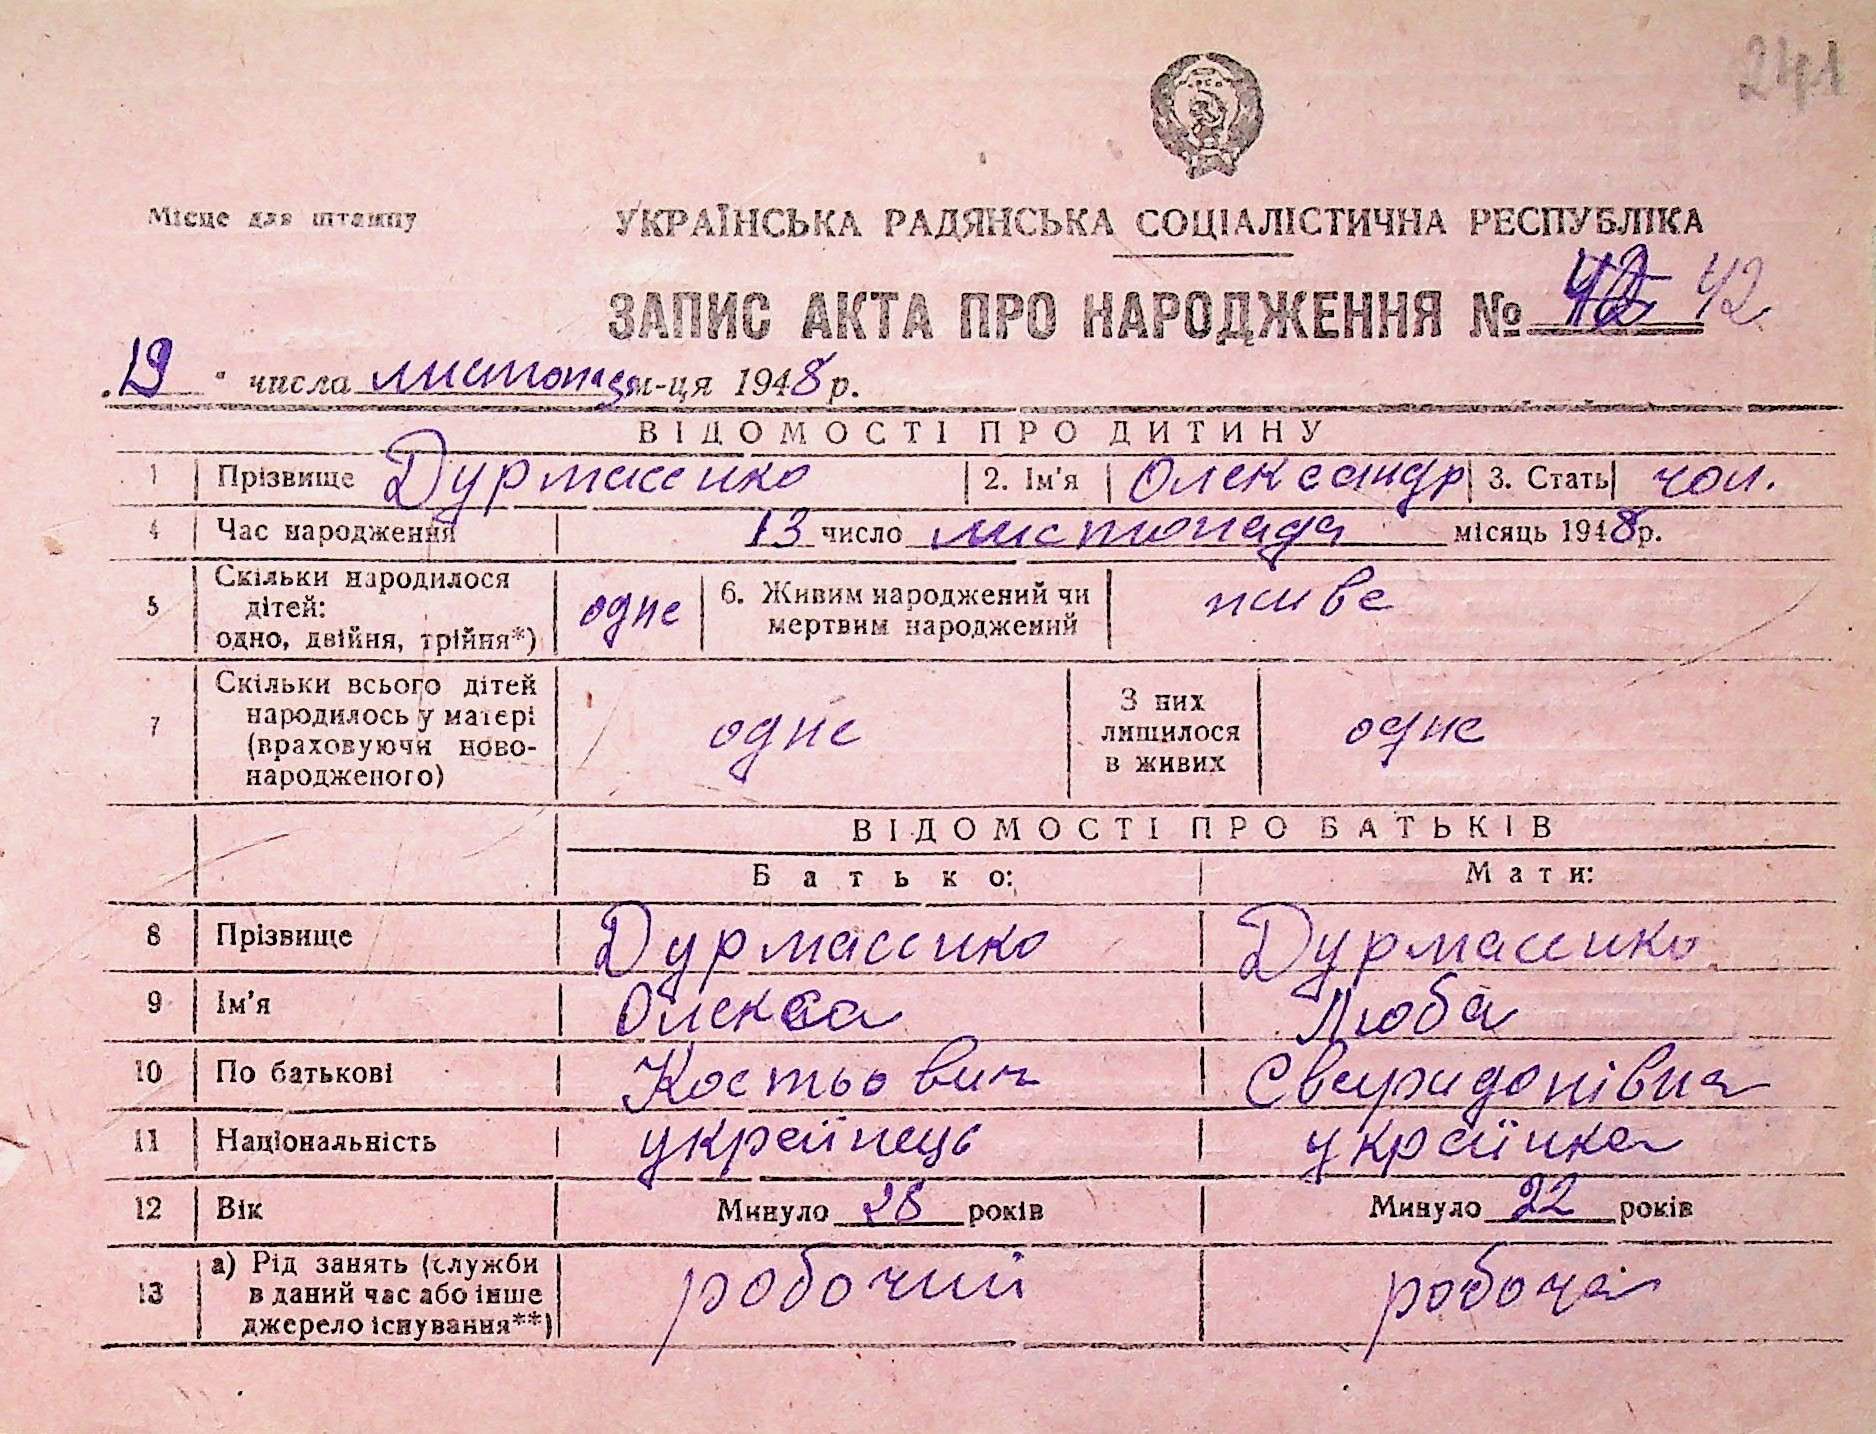 241
Місце для штампу
УКРАЇНСЬКА РАДЯНСЬКА СОЦІАЛІСТИЧНА РЕСПУБЛІКА
ЗАПИС АКТА ПРО НАРОДЖЕННЯ № 42 42
19 " числа листопад м-ця 1948 р.
ВІДОМОСТІ ПРО ДИТИНУ
1 Прізвище Дурмасенко 2. Ім'я Олександр 3. Стать чол.
4 Час народження 13 число листопада місяць 1948 р.
5 Скільки народилося дітей: одно, двійня, трійня*) одне 6. Живим народжений чи мертвим народжений живе
7 Скільки всього дітей народилось у матері (враховуючи новонародженого) одне З них лишилося в живих одне
ВІДОМОСТІ ПРО БАТЬКІВ
Батько: Мати:
8 Прізвище Дурмасенко Дурмасенко
9 Ім'я Олекса Люба
10 По батькові Костьович Свиридонівна
11 Національність українець українка
12 Вік Минуло 28 років Минуло 22 років
13 а) Рід занять (служби в даний час або інше джерело існування**) робочий робоча